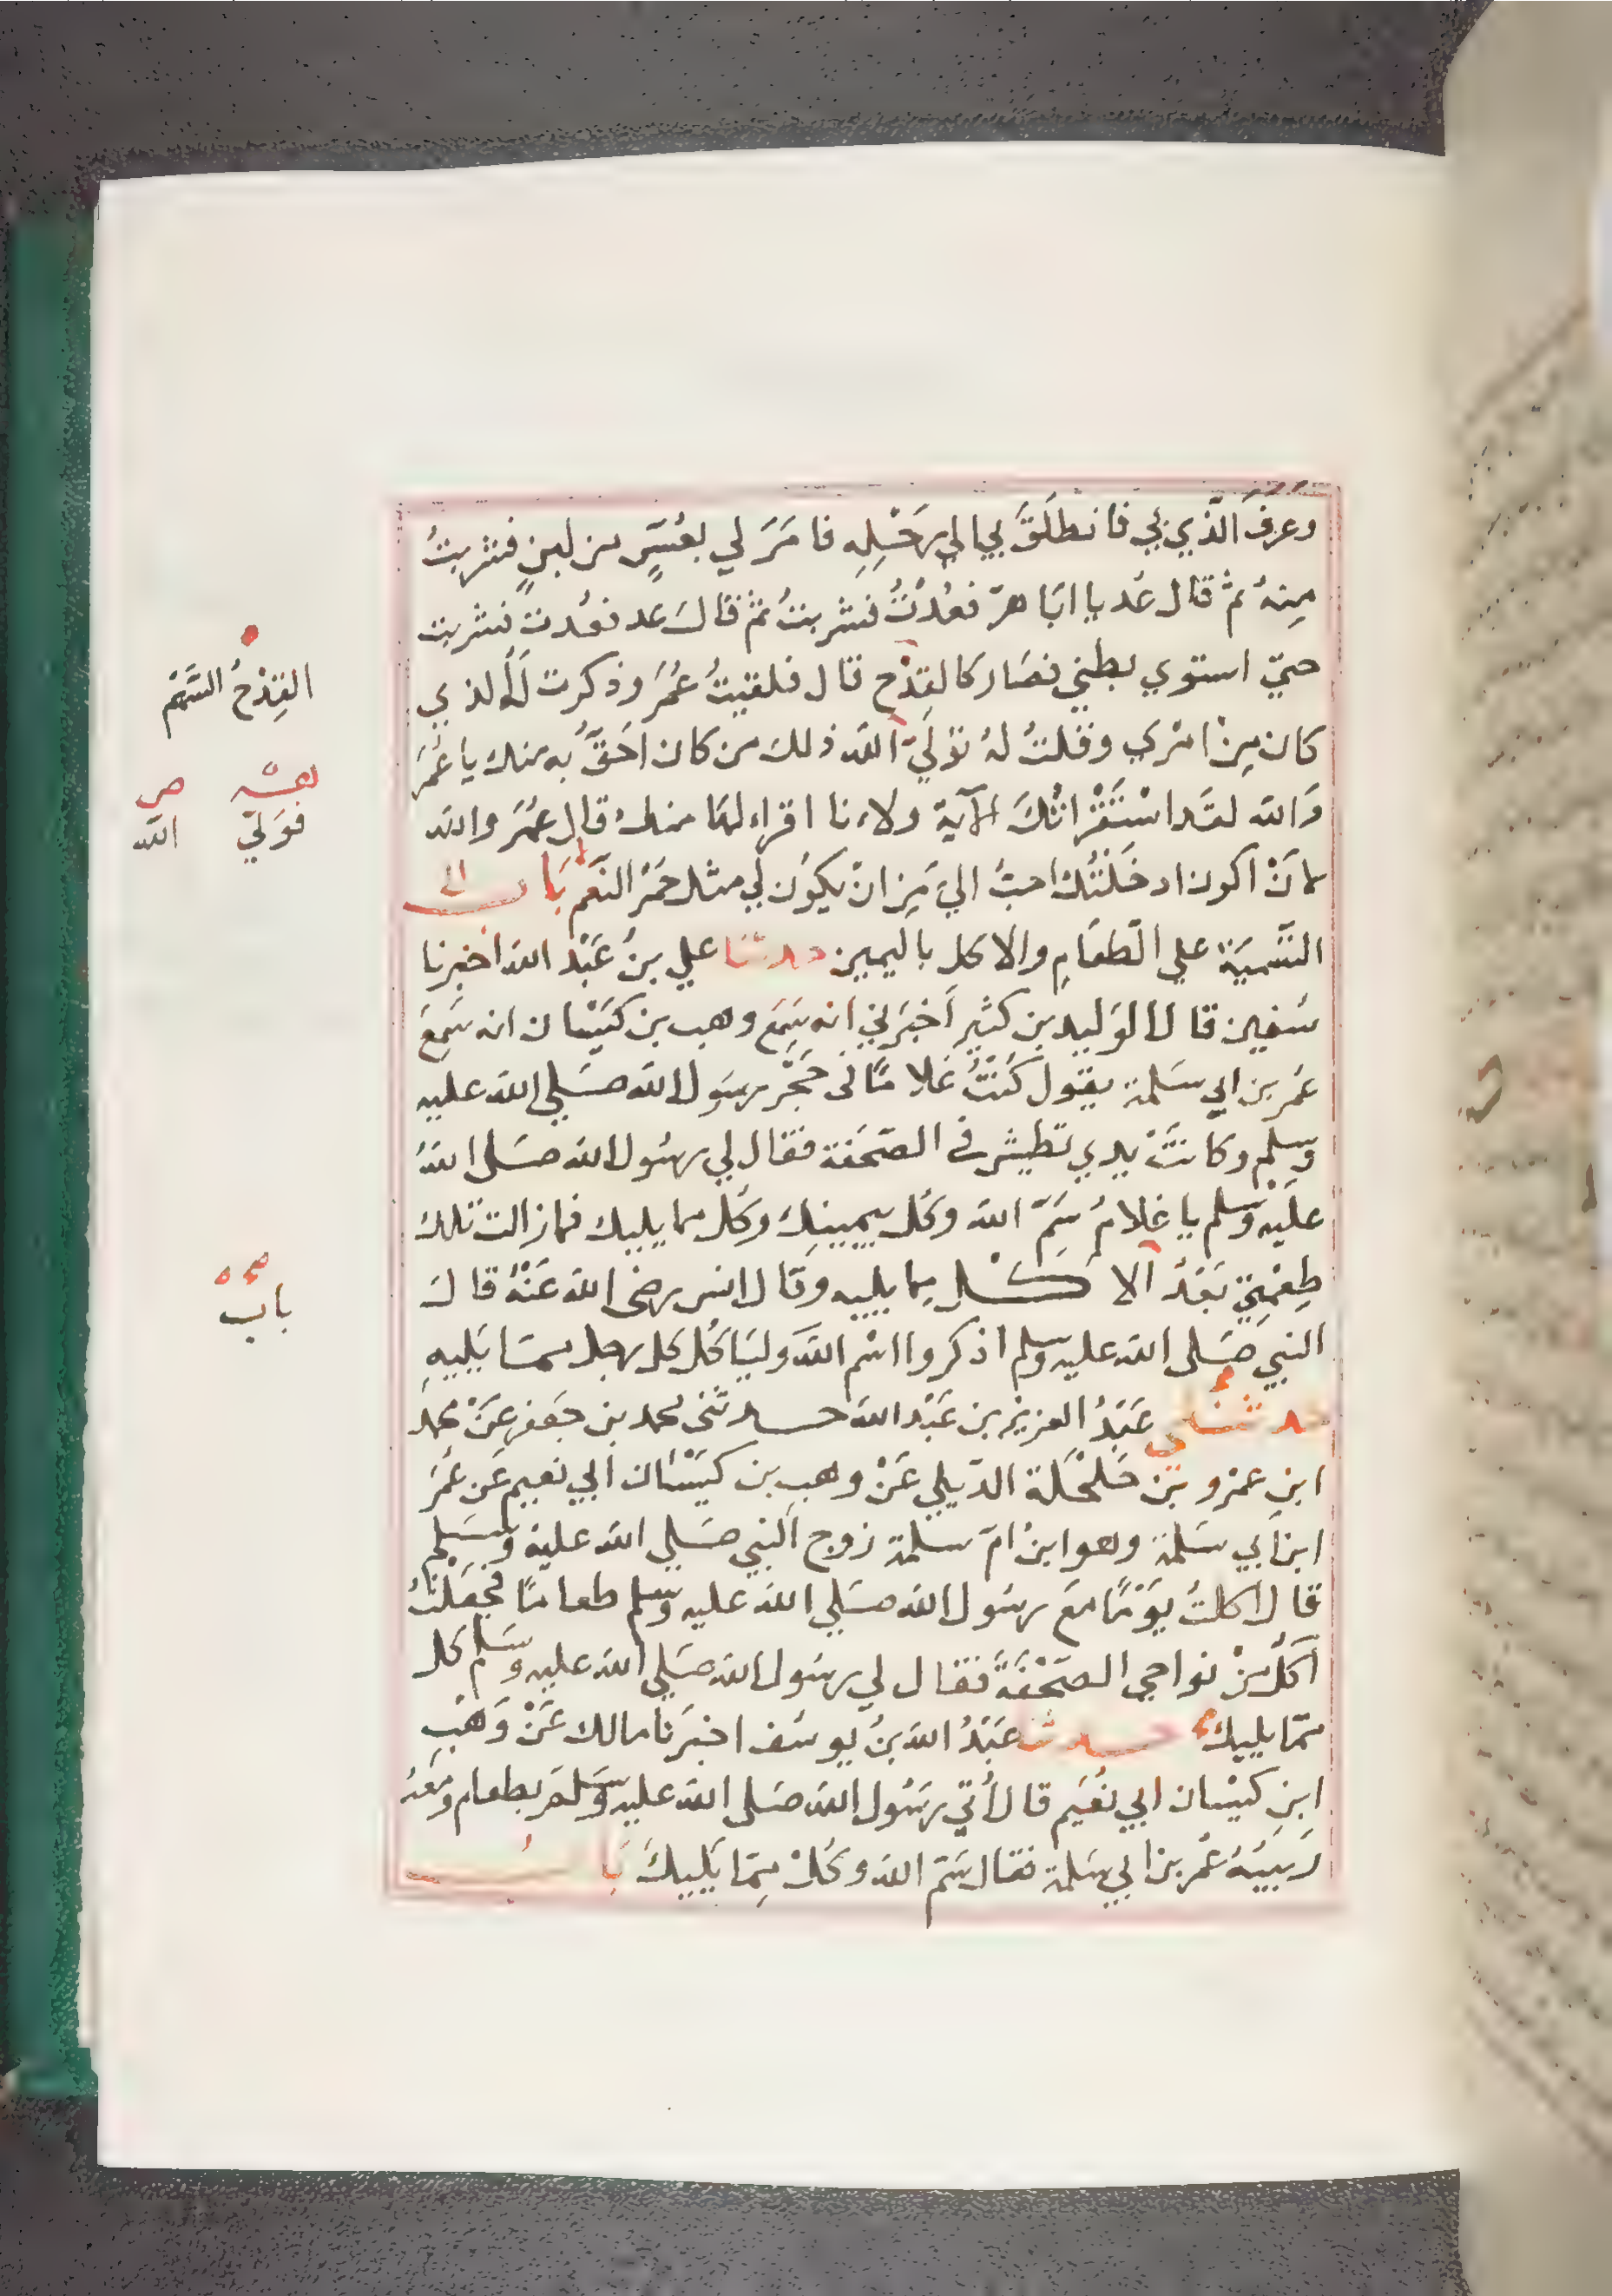 وعرف الذي بي فانطلق بي الي رحله فامر لي بعس من لبن فشربت
منه ثم قال عد يا ابا هر فعدت فشربت ثم قال عد فعدت فشربت
حتي استوي بطني فصار كالقدح قال فلقيت عمر وذكرت له الذي
كان من امري وقلت له تولي الله ذلك من كان احق به منك يا عمر
والله لقد استقراتك الآية ولاءنا اقراء لها منك قال عمر والله
لان اكون ادخلتك احب الي من ان يكون لي مثل حمر النعم باب
التسمية علي الطعام والاكل باليمين حدثنا علي بن عبد الله اخبرنا
سفين قال الوليد بن كثير اخبرني انه سمع وهب بن كيسان انه سمع
عمر بن ابي سلمة يقول كنت غلاما في حجر رسول الله صلي الله عليه
وسلم وكانت يدي تطيش في الصحفة فقال لي رسول الله صلى الله
عليه وسلم يا غلام سم الله وكل بيمينك وكل مما يليك فما زالت تلك
طعمتي بعد الاكل مما يليه وقال انس رضى الله عنه قال
النبي صلى الله عليه وسلم اذكروا اسم الله ولياكل كل رجل مما يليه
حدثني عبد العزيز بن عبد الله حدثنى محمد بن جعفر عن محمد
ابن عمرو بن حلحلة الديلي عن وهب بن كيسان ابي نعيم عن عمر
ابن ابي سلمة وهو ابن ام سلمة زوج النبي صلي الله عليه وسلم
قال اكلت يوما مع رسول الله صلي الله عليه وسلم طعاما فجعلت
آكل من نواحي الصحفة فقال لي رسول الله صلي الله عليه وسلم كل
مما يليك حدثنا عبد الله بن يوسف اخبرنا مالك عن وهب
ابن كيسان ابي نعيم قال أتي رسول الله صلى الله عليه وسلم بطعام ومعه
ربيبه عمر بن ابي سلمة فقال سم الله وكل مما يليك باب
القدح السهم
فولي الله
باب